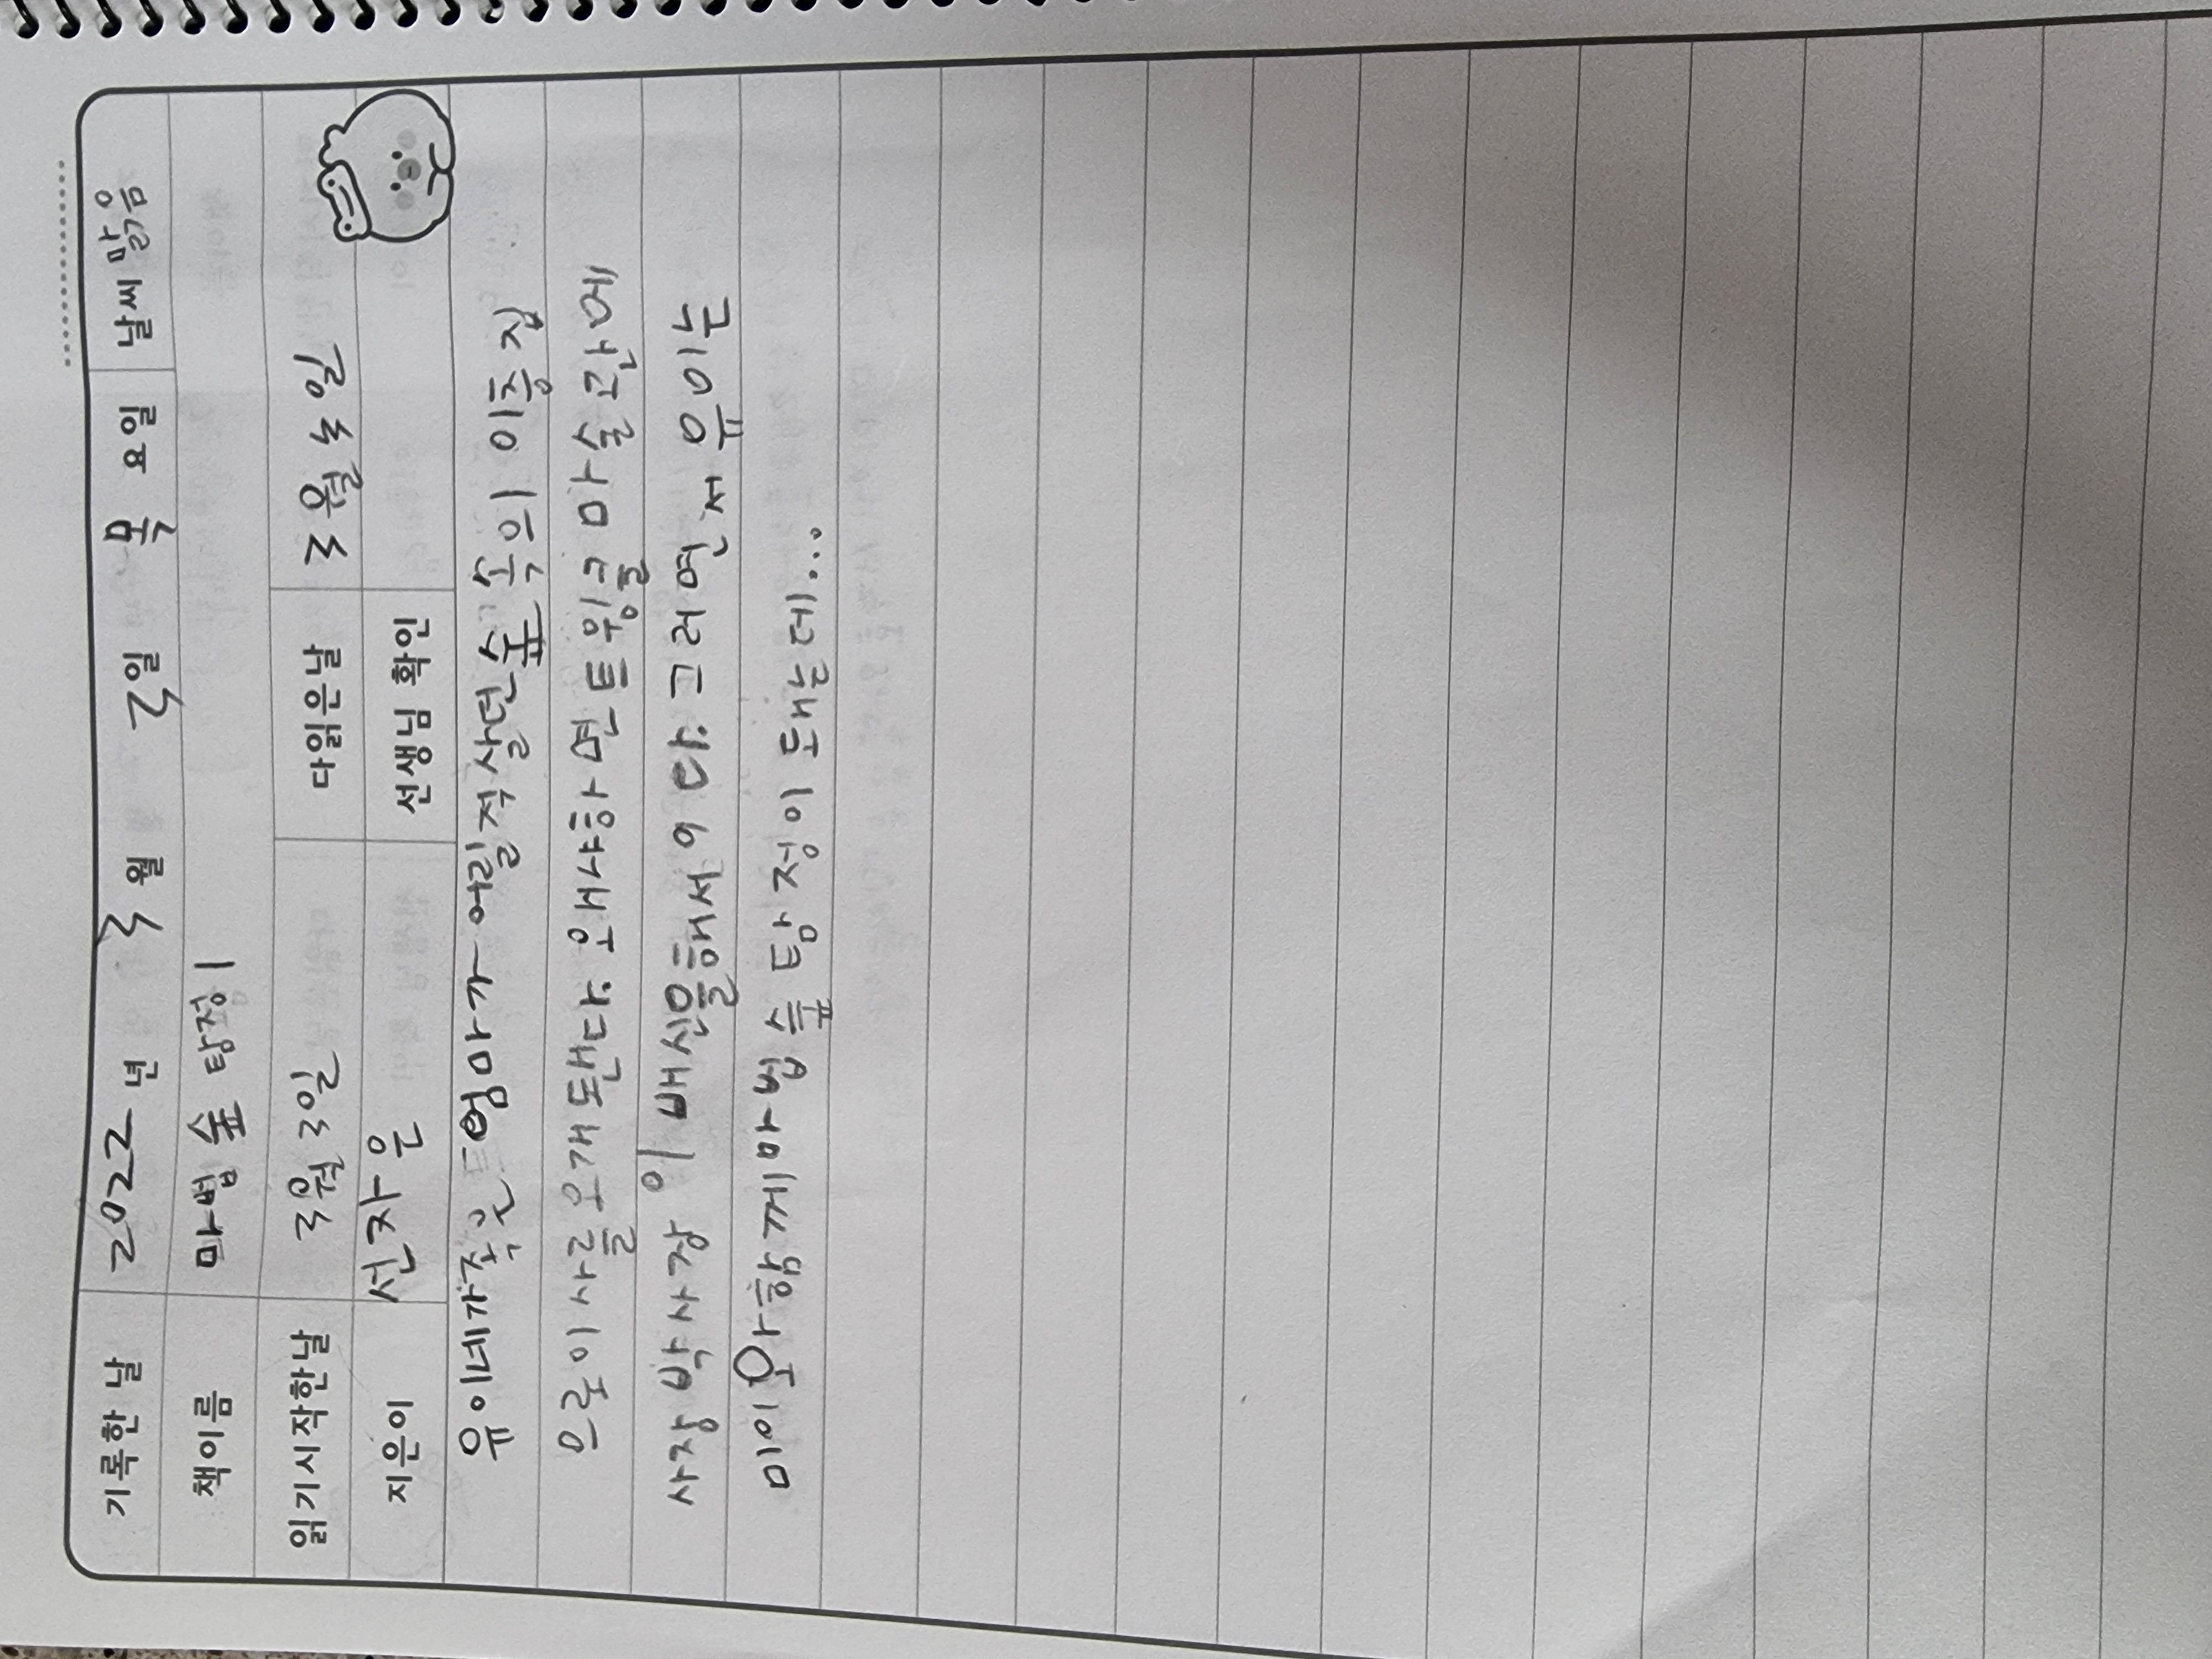 기록한 날 2022 년 3 월 3 일 목 요일 날씨 맑음
책이름 마법 숲 탐정 1
읽기시작한날 3월 3일 다읽은날 3월 4일
지은이 선자은 선생님 확인
유이네가족은 엄마가 어릴적살던숲 속의 이층집
으로이사를 오개됀다. 왜냐하면트윙클 마술관에
사장 박사장이 배신을해서이다. 그러면서 유이는
미이와함께마법숲 탐정이 돼는데...